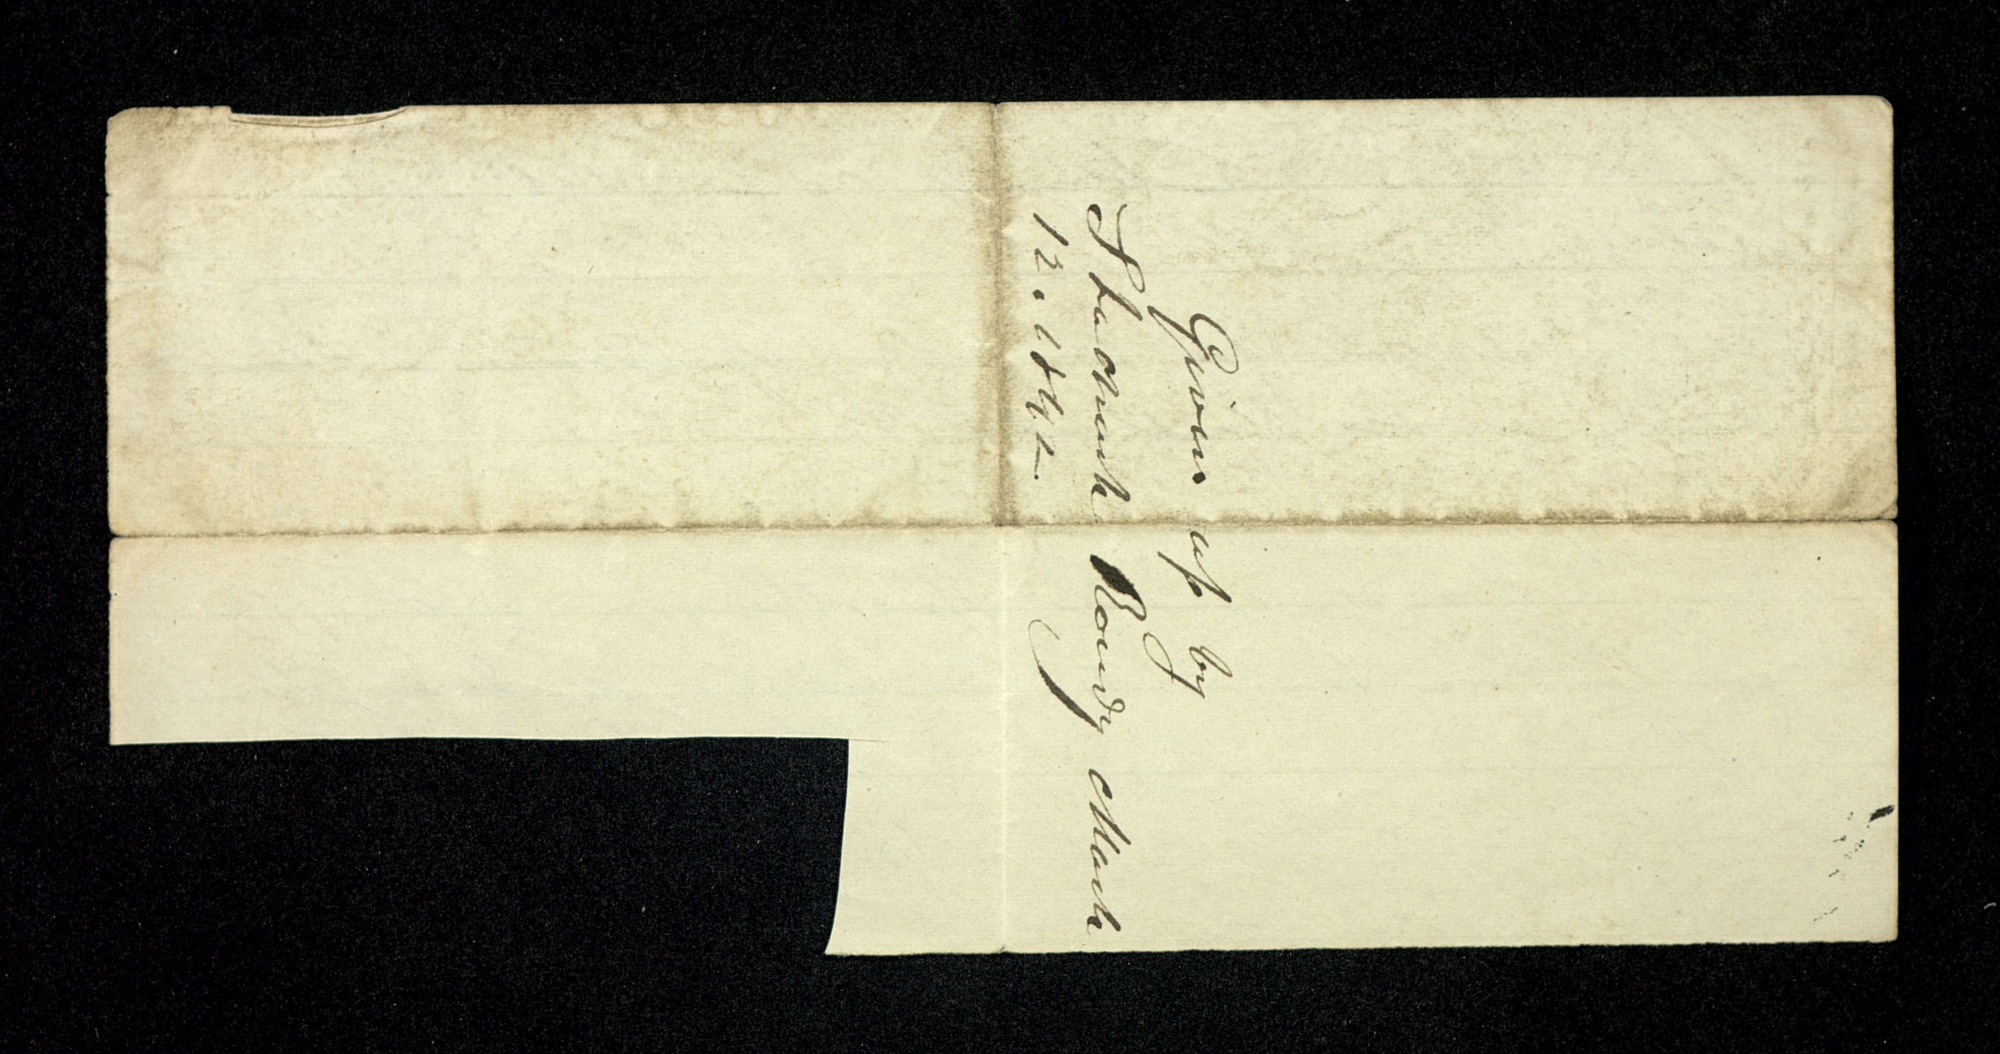 Given up by
Shadrach Roundy March
12. 1842.